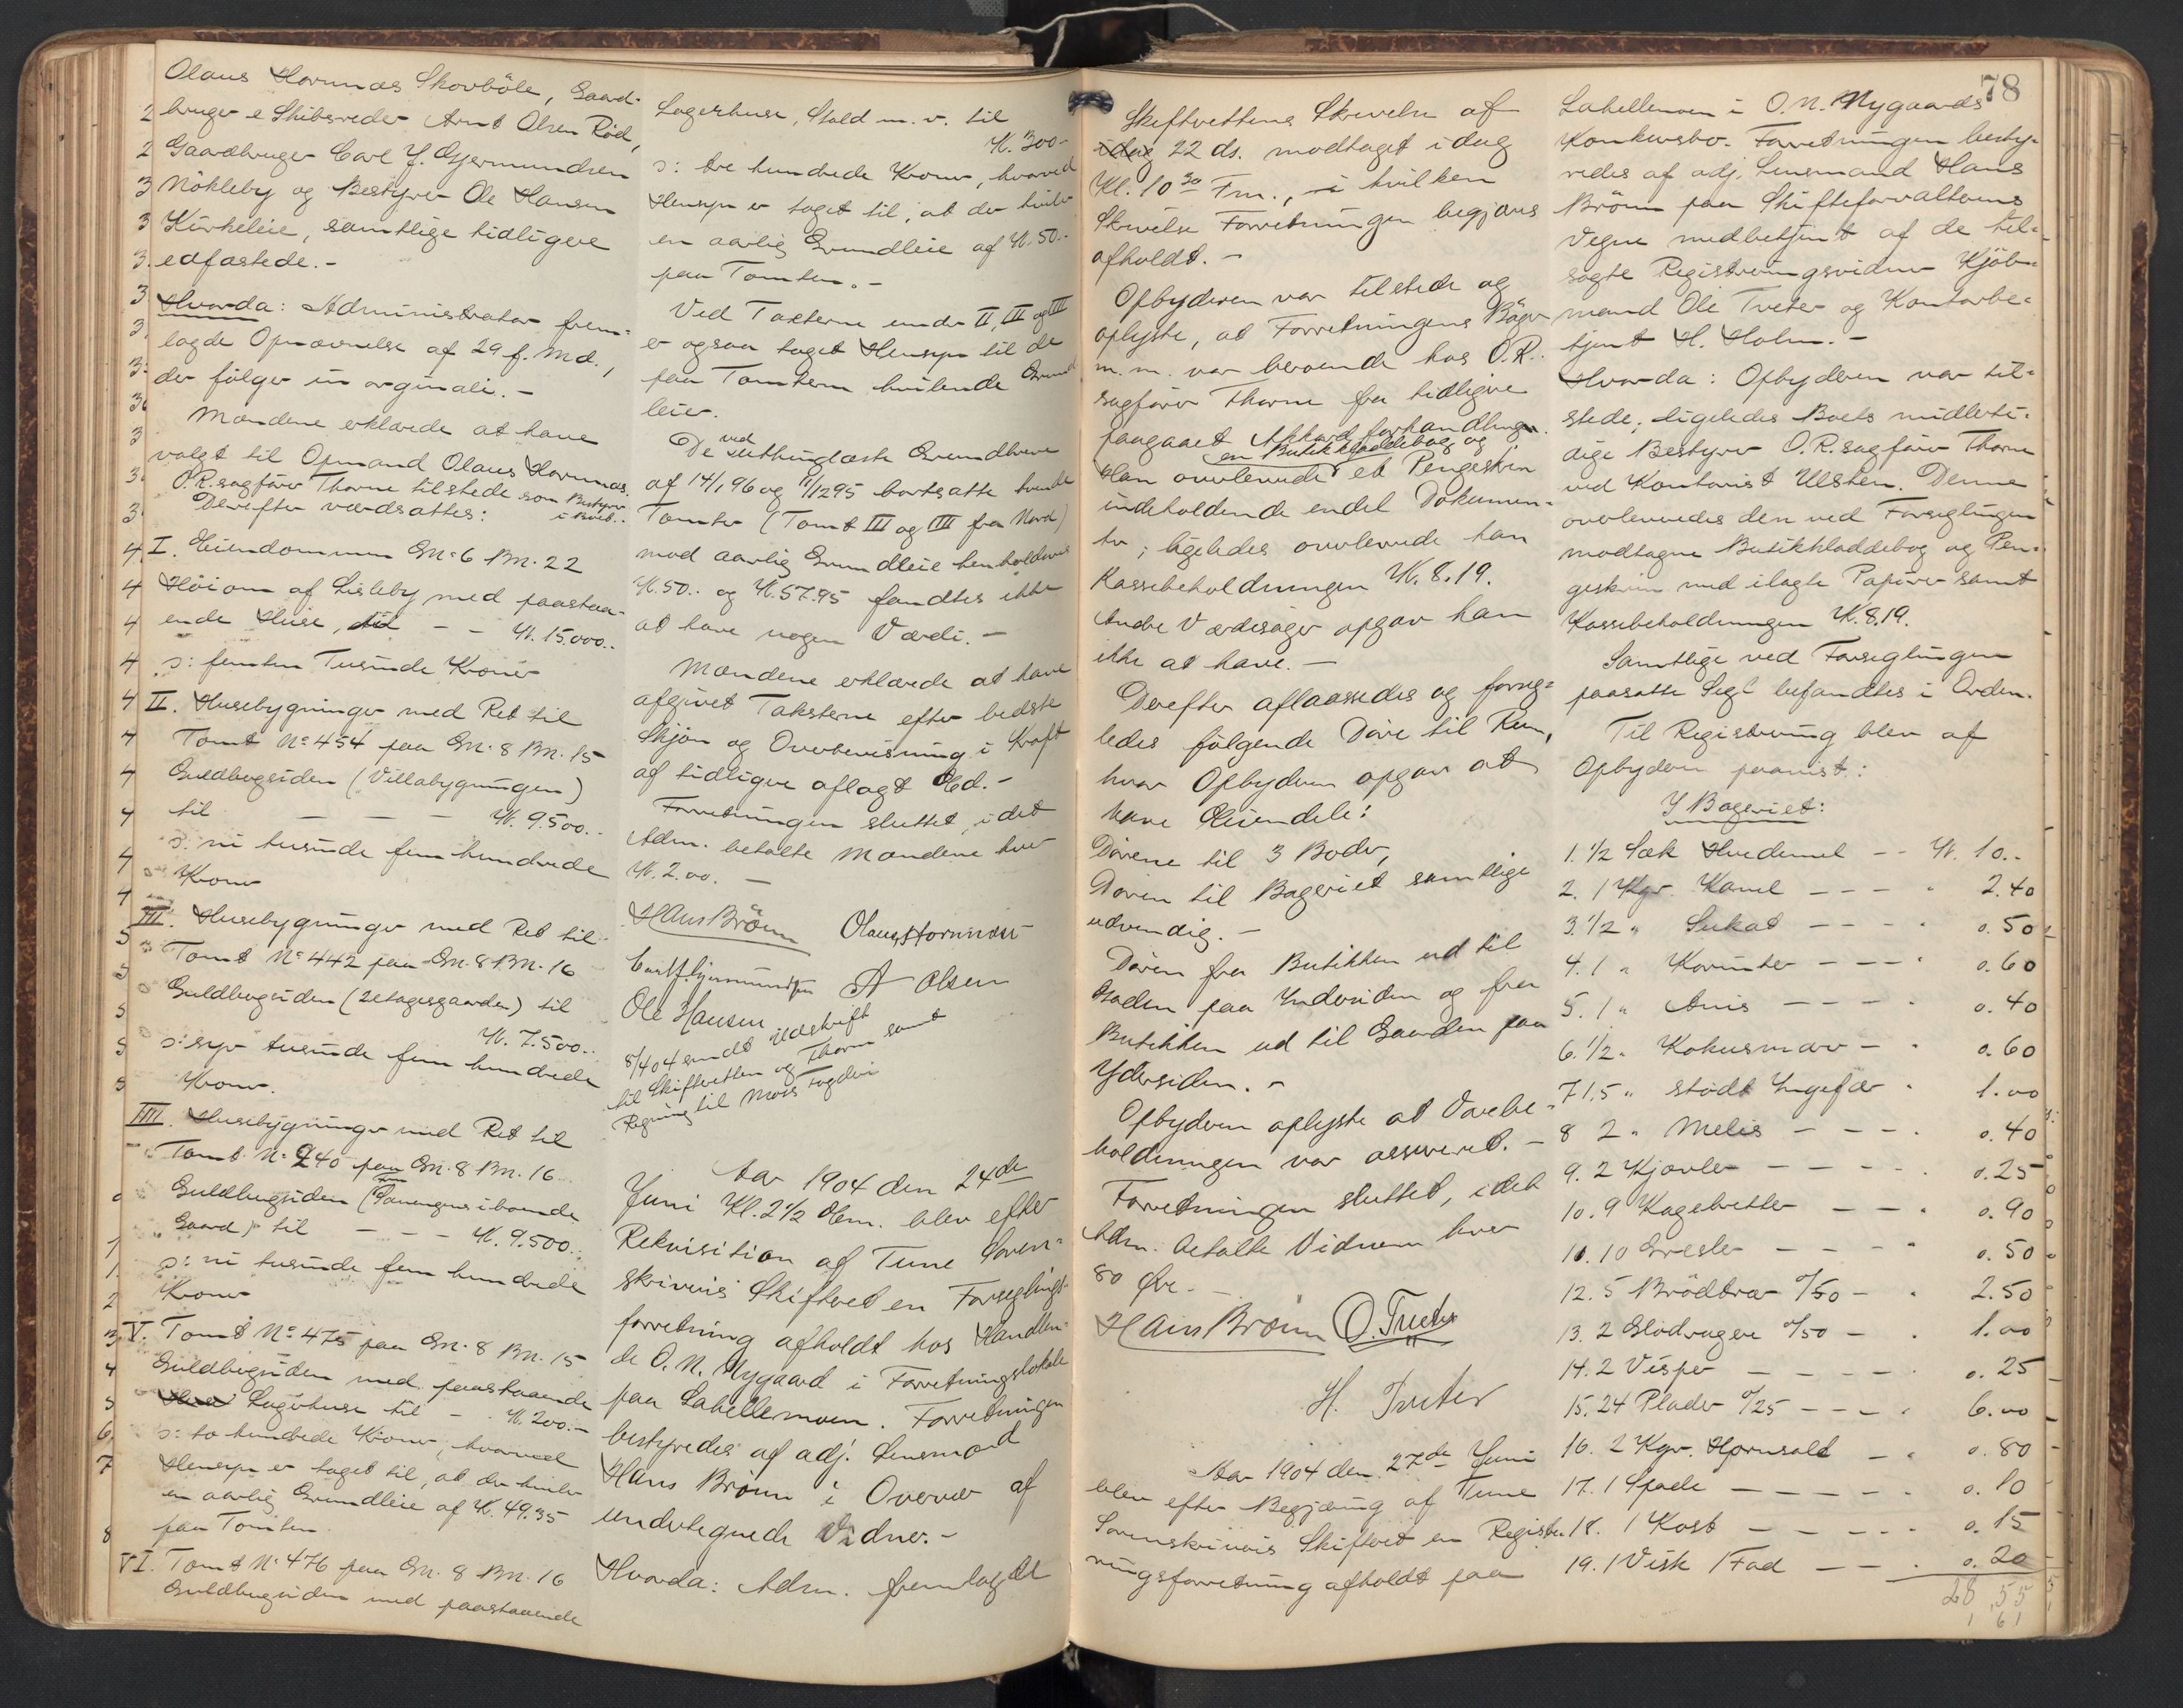 Olaus Hornnæs Skovbøle, Gaard-
bruger & Skibsreder Arnt Olsen Rød,
Gaardbruger Carl J. Gjermundsen
Nøkleby og Bestyrer Ole Hansen
Kirkeleie, samtlige tidligere
edfæstede.-
Hvorda: Administrator frem-
lagde Opnævnelse af 29 f. Md.,
der følger in orginali.-
Mændene erklærde at have
valgt til Opmand Olaus Hornnæs.
O.R.sagfører Thorne tilstede som Bestyrer
i Boet..
Derefter værdsattes:
I. Eiendommen Gn. 6 Bn. 22
Høiom af Lisleby med paastaa-
ende Huse, til - - Kr. 15,000..
ɔ: femten Tusinde Kroner
II. Husebygninger med Ret til
Tomt No 454 paa Gn. 8 Bn. 15
Guldbergsiden (Villabygningen)
til - - - Kr. 9.500..
ɔ: ni tusinde fem hundrede
Kroner
III. Husebygninger med Ret til
Tomt No 442 paa Gn. 8 Bn. 16
Guldbergsiden (2etagesgaarden) til
Kr. 7.500..
ɔ: syv tusinde fem hundrede
Kroner.
IIII. Husebygninger med Ret til
Tomt No 240 paa Gn. 8 Bn. 16
Guldbergsiden (
iboende
Gaard) til - - - Kr. 9.500..
ɔ: ni tusinde fem hundrede
Kroner
V. Tomt No 475 paa Gn. 8 Bn. 15
Guldbergsiden med paastaaende
Lagerhuse til - Kr. 200.-
ɔ: to hundrede Kroner, hvorved
Hensyn er taget til, at der hviler
en aarlig Grundleie af Kr. 49.35
paa Tomten.
VI. Tomt No 476 paa Gn. 8 Bn. 16
Guldbergsiden med paastaaende
Lagerhuse, Stald m. v. til
Kr. 300-
ɔ: tre hundrede Kroner, hvorved
Hensyn er taget til, at der hviler
en aarlig Grundleie af Kr. 50.-
paa Tomten.-
Ved Taxterne under II, III og IIII
er ogsaa taget Hensyn til de
paa Tomterne hvilende Grund
leier.
De ved thinglæste Grundbreve
af 14/1 96 og 11/12 95 bortsatte tvende
Tomter (Tomt III og IIII fra Nord)
mod aarlig Grundleie henholdsvis
Kr. 50.. og Kr. 57.95 fandtes ikke
at have nogen Værdi.-
Mændene erklærde at have
afgivet Taksterne efter bedste
Skjøn og Overbevisning i Kraft
af tidligere aflagt Ed.-
Forretningen sluttet, idet
Adm. betalte Mændene hver
Kr. 2.00.-
Hans Brönn Olaus Hornnæs
Carl J. Gjermundsen A Olsen
Ole Hansen
8/4 04 sendt Udskrift
til Skifteretten og Thorne samt
Regning til Moss Fogderi
Aar 1904 den 24de
Juni Kl. 2 1/2 Em. blev efter
Rekvisition af Tune Soren-
skriveris Skifteret en Forseglings-
forretning afholdt hos Handlen-
de O. N. Nygaard i Forretningslokale
paa Labellemoen. Forretningen
bestyredes af adj. Lensmand
Hans Brönn i Overvær af
undertegnede Vidner.-
Hvorda: Adm. fremlagde
78
Skifterettens Skrivelse af
idag 22 ds. modtaget idag
Kl. 10 30 Fm., i hvilken
Skrivelse Forretningen begjæres
afholdt.-
Opbyderen var tilstede og
oplyste, at Forretningens Bøger
m. m. var beroende hos O.R.
sagfører Thorne fra tidligere
paagaaet Akkordforhandlinger.
en Butikkladdebog og
Han overleverede et Pengeskrin
indeholdende endel Dokumen-
ter, ligeledes overleverede han
Kassebeholdningen Kr. 8.19.
Andre Værdisager opgav han
ikke at have.-
Derefter aflaasedes og forseg-
ledes følgende Døre til Rum,
hvor Opbyderen opgav at
have Eiendele:
Dørene til 3 Boder,
Døren til Bageriet samtlige
udvendig.-
Døren fra Butikken ud til
Gaden paa Indersiden og fra
Butikken ud til Gaarden paa
Ydersiden.-
Opbyderen oplyste at Varebe-
holdningen var assureret.-
Forretningen sluttet, idet
Adm. betalte Vidnerne hver
80 Øre.-
Hans Brönn O. Tveter
H. Tveter
Aar 1904 den 27de Juni
blev efter Begjæring af Tune
Sorenskriveris Skifteret en Registre-
ringsforretning afholdt paa
Labellemoen i O. N. Nygaards
Konkursbo. Forretningen besty-
redes af adj. Lensmand Hans
Brönn paa Skifteforvalterens
Vegne medbetjent af de til-
sagte Registreringsvidner Kjøb-
mand Ole Tveter og Kontorbe-
tjent H. Holm.-
Hvorda: Opbyderen var til-
stede, ligeledes Boets midlerti-
dige Bestyrer O.R.sagfører Thorne
ved Kontorist Ulsten. Denne
overleveredes den ved Forseglingen
modtagne Butikkladdebog og Pen-
geskrin med ilagte Papirer samt
Kassebeholdningen Kr. 8.19.
Samtlige ved Forseglingen
paasatte Segl befandtes i Orden.
Til Registrering blev af
Opbyderen paavist:
I Bageriet:
1. 1/2 Sæk Hvedemel - - Kr. 10..
2. 1 Kgr. Kanel - - - " 2.40
3. 1/2 " Sukat - - - - " 0.50
4. 1 " Korinter - - - " 0.60
5. 1 " Anis - - - - " 0.40
6. 1/2 " Kokusmav - " 0.60
7 1.5 " stødt Ingefær " 1.00
8 2 " Melis - - - " 0.40
9. 2 Kjævler - - - - - 0.25
10. 9 Kagebretter - - " 0.90
10. 10 Gresler - - - " 0.50
12. 5 Brødbræ 0/50 - " 2.50
13. 2 Glødragere 0/50 - " 1.00
14. 2 Visper - - - - " 0.25
15. 24 Plader 0/25 - - - " 6.00
16. 2 Kgr. Hornsalt - " 0.80
17. 1 Spade - - - - - " 0.10
18. 1 Kost - - - - - " 0.15
19. 1 Visk 1 Fad - - " 0.20
28,55
1 61